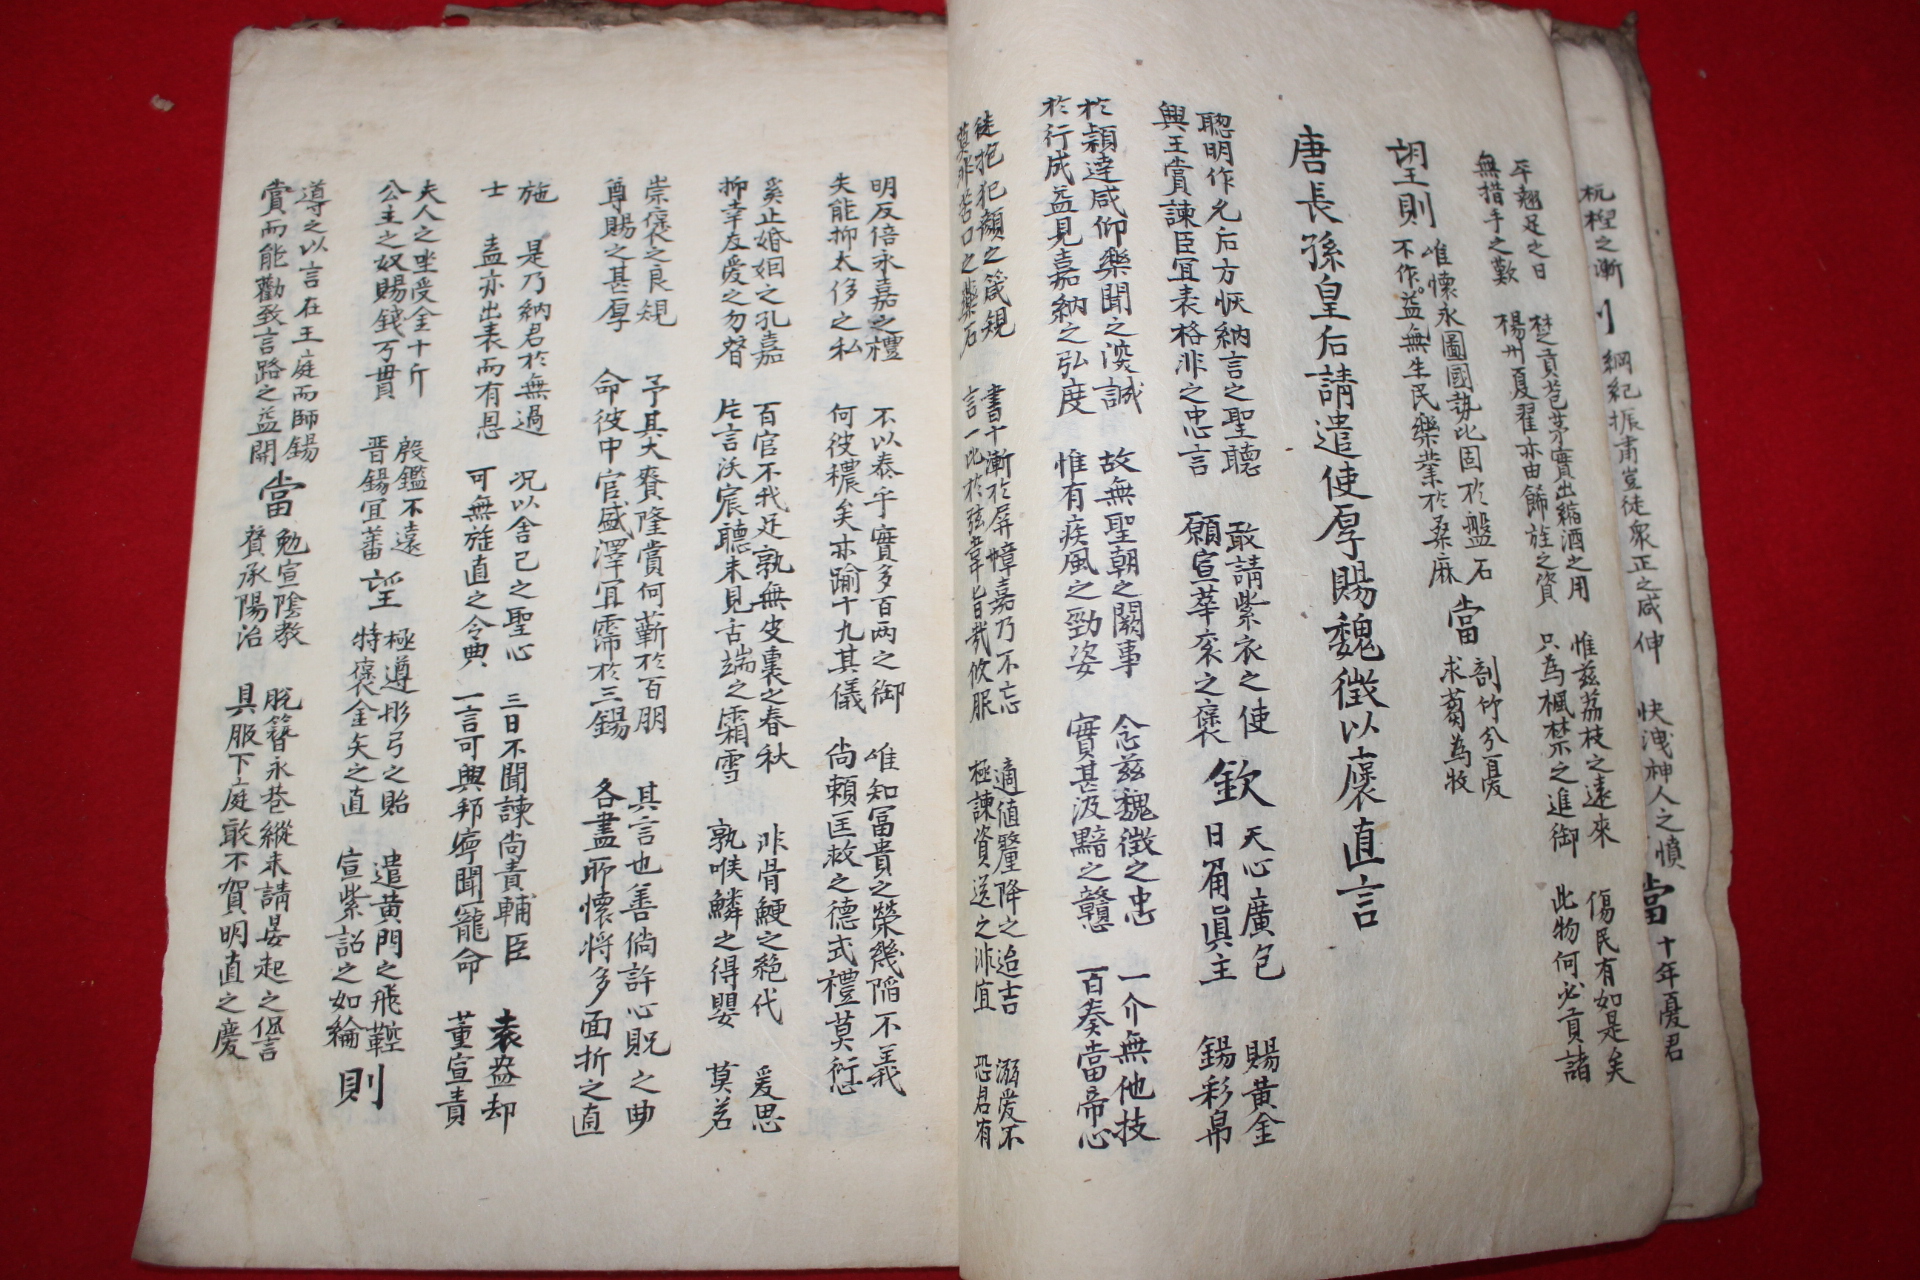 杌桯之漸 則 綱紀振肅豈徒衆正之咸伸 快洩神人之憤 當 十年憂君
平翹足之日 楚貢苞茅實出縮酒之用 惟玆荔枝之遠來 傷民有如是矣
無措手之歎 楊州夏翟亦由飾旌之資 只為楓禁之進御 此物何必貢諸
望則 唯懷永圖國勢比固於盤石 當 剖竹分憂
不作益無生民樂業於桑麻 求蒭為牧
唐長孫皇后請遣使厚賜魏徵以褒直言
聰明作元后方恢納言之聖聽 敢請紫衣之使 欽 天心廣包 賜黃金
興王賞諫臣宜表格非之忠言 願宣華袞之褒 日角眞主 錫彩帛
於穎達咸仰樂聞之淡誠 故無聖朝之闕事 念玆魏徵之忠 一介無他技
於行成益見嘉納之弘度 惟有疾風之勁姿 實甚汲黯之戇 百奏當帝心
徒抱犯顏之箴規 書十漸於屛幛嘉乃不忘 適値釐降之迨吉 溺愛不
莫非苦口之藥石 言一比於弦韋旨哉攸服 極諫資送之非宜 恐君有
明反倍永嘉之禮 不以泰乎實多百兩之御 唯知富貴之榮幾陷不義
失能抑太侈之私 何彼穠矣亦踰十九其儀 尙賴匡救之德式禮莫愆
奚止婚姻之孔嘉 百官不我足孰無皮裏之春秋 非骨鯁之絶代 爰思
抑幸友愛之勿替 片言沃宸聽未見舌端之霜雪 孰喉鱗之得嬰 莫若
崇褒之良規 予其大賚隆賞何蘄於百朋 其言也善倘許心貺之曲
尊賜之甚厚 命彼中官盛澤宜霈於三錫 各盡所懷將多面折之直
施 是乃納君於無過 況以舍己之聖心 三日不聞諫尙責輔臣 袁盎却
士 盍亦出表而有恩 可無旌直之令典 一言可興邦寧聞寵命 董宣責
夫人之坐受金十斤 殷鑑不遠 望 極遵彤弓之貽 遣黃門之飛鞚 則
公主之奴賜錢万貫 晋錫宜蕃 特褒金矢之直 宣紫詔之如綸
導之以言在王庭而師錫 當 勉宣陰敎 脫簪永巷縱未請晏起之愆言
賞而能勸致言路之益開 賛承陽治 具服下庭敢不賀明直之慶